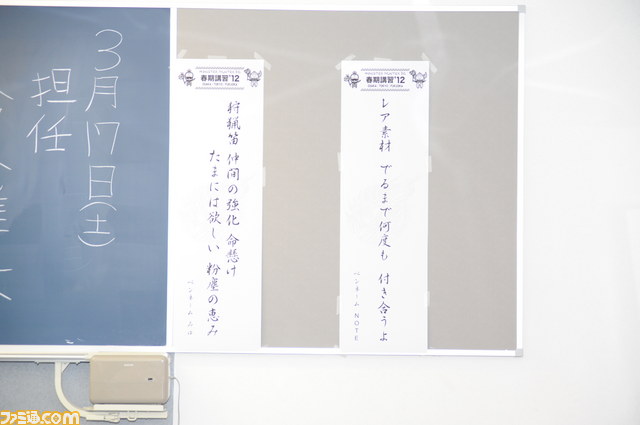 3月17日(土)
担任
MONSTER HUNTER 3G
春期講習'12
OSAKA TOKYO FUKUOKA
レア素材 でるまで何度も 付き合うよ
ペンネーム NOTE
MONSTER HUNTER 3G
春期講習'12
OSAKA TOKYO FUKUOKA
狩猟笛 仲間の強化 命懸け
たまには欲しい 粉塵の恵み
ペンネーム
ファミ通.com